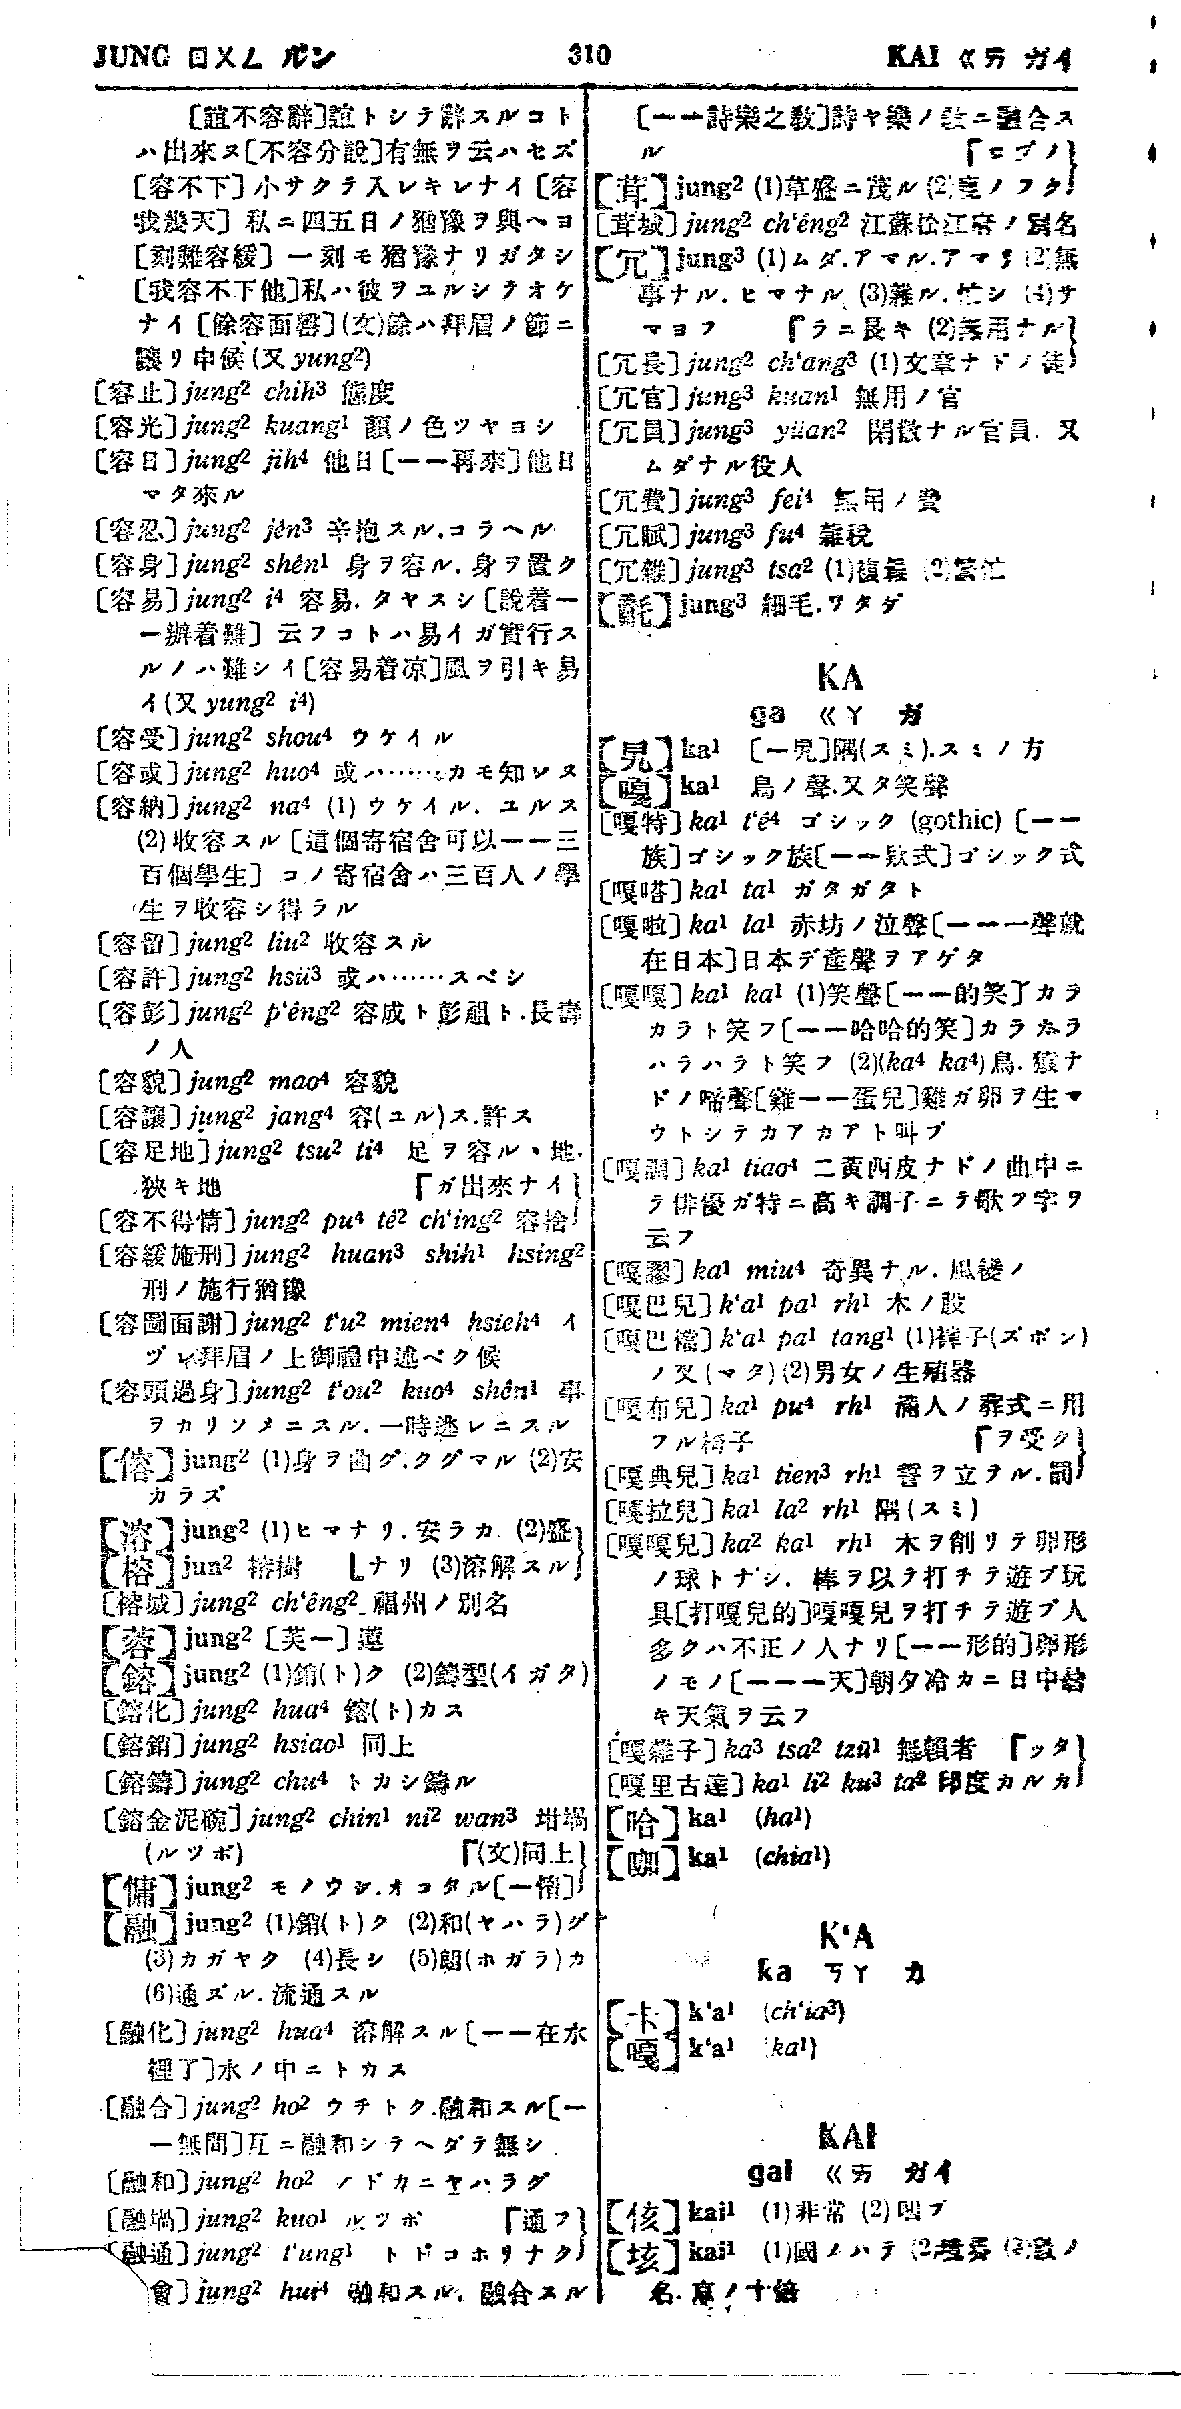 JUNG ㄖㄨㄥ ルン 310 KAI ㄍㄞ ガイ
[誼不容辭]誼トシテ辭スルコト
ハ出來ヌ[不容分說]有無ヲ云ハセズ
[容不下]小サクテ入レキレナイ[容
我幾天] 私ニ四五日ノ猶豫ヲ與ヘヨ
[刻難容緩] 一刻モ猶豫ナリガタシ
[我容不下他]私ハ彼ヲユルシテオケ
ナイ[餘容面罄](文)餘ハ拜眉ノ節ニ
讓リ申候(又yung²)
[容止]jung² chih³ 態度
[容光]jung² kuang¹ 顏ノ色ツヤヨシ
[容日]jung² jih⁴ 他日[一一再來]他日
マタ來ル
[容忍]jung² jên³ 辛抱スル.コラヘル
[容身]jung² shên¹ 身ヲ容ル.身ヲ置ク
[容易]jung² i⁴ 容易.タヤスシ[說着一
一辦着難] 云フコトハ易イガ實行ス
ルノハ難シイ[容易着凉]風ヲ引キ易
イ(又yung² i⁴)
[容受]jung² shou⁴ ウケイル
[容或]jung² huo⁴ 或ハ……カモ知レヌ
[容納]jung² na⁴ (1)ウケイル.ユルス
(2)收容スル[這個寄宿舍可以一一三
百個學生] コノ寄宿舍ハ三百人ノ學
生ヲ收容シ得ラル
[容留]jung² liu² 收容スル
[容許]jung² hsü³ 或ハ……スベシ
[容彭]jung² p'êng² 容成ト彭祖ト.長壽
ノ人
[容貌]jung² mao⁴ 容貌
[容讓]jung² jang⁴ 容(ユル)ス.許ス
[容足地]jung² tsu² ti⁴ 足ヲ容ルヽ地.
狹キ地 「ガ出來ナイ}
[容不得情]jung² pu⁴ tê² ch'ing² 容捨
[容緩施刑]jung² huan³ shih¹ hsing²
刑ノ施行猶豫
[容圖面謝]jung² t'u² mien⁴ hsieh⁴ イ
ヅレ拜眉ノ上御禮申述ベク候
[容頭過身]jung² t'ou² kuo⁴ shên¹ 事
ヲカリソメニスル.一時逃レニスル
【傛】jung² (1)身ヲ曲グ.クグマル (2)安
カラズ
【溶】jung² (1)ヒマナリ.安ラカ (2)盛}
【榕】jun² 榕樹 ⎣ナリ (3)溶解スル}
[榕城]jung² ch'êng² 福州ノ別名
【蓉】jung² [芙一]蓮
【鎔】jung² (1)銷(ト)ク (2)鑄型(イガタ)
[鎔化]jung² hua⁴ 鎔(ト)カス
[鎔銷]jung² hsiao¹ 同上
[鎔鑄]jung² chu⁴ トカシ鑄ル
[鎔金泥碗]jung² chin¹ ni² wan³ 坩堝
(ルツボ) 「(文)同上}
【慵】jung² モノウシ.オコタル[一惰]
【融】jung² (1)銷(ト)ク (2)和(ヤハラ)グ
(3)カガヤク (4)長シ (5)朗(ホガラ)カ
(6)通ズル.流通スル
[融化]jung² hua⁴ 溶解スル[一一在水
裡了]水ノ中ニトカス
[融合]jung² ho² ウチトク.融和スル[一
一無間]互ニ融和シテヘダテ無シ
[融和]jung² ho² ノドカニヤハラグ
[融堝]jung² kuo¹ ルツボ 「通フ}
[融通]jung² t'ung¹ トドコホリナク
會]jung² hui⁴ 融和スル.融合スル
[一一詩樂之敎]詩ヤ樂ノ敎ニ融合ス
ル
【茸】jung² (1)草盛ニ茂ル
[茸城]jung² ch'êng² 江蘇松江府ノ別名
【冗】jung³ (1)ムダ.アマル.アマリ (2)無
事ナル.ヒマナル (3)雜ル.忙シ (4)サ
マヨフ 「ラニ長キ (2)無用ナル}
[冗長]jung² ch'ang³ (1)文章ナドノ徒
[冗官]jung³ kuan¹ 無用ノ官
[冗員]jung³ yüan² 閑散ナル官員.又
ムダナル役人
[冗費]jung³ fei⁴ 無用ノ費
[冗賦]jung³ fu⁴ 雜稅
[冗雜]jung³ tsa² (1)複雜 (2)繁忙
【氄】jung³ 細毛.ワタゲ
KA
ga ㄍㄚ ガ
【旯】ka¹ [一旯]隅(スミ).スミノ方
【嘎】ka¹ 鳥ノ聲.又タ笑聲
[嘎特]ka¹ t'ê⁴ ゴシック (gothic) [一一
族]ゴシック族[一一欵式]ゴシック式
[嘎嗒]ka¹ ta¹ ガタガタト
[嘎啦]ka¹ la¹ 赤坊ノ泣聲[一一一聲就
在日本]日本デ產聲ヲアゲタ
[嘎嘎]ka¹ ka¹ (1)笑聲[一一的笑]カラ
カラト笑フ[一一哈哈的笑]カラカラ
ハラハラト笑フ (2)(ka⁴ ka⁴)鳥.猿ナ
ドノ啼聲[雞一一蛋兒]雞ガ卵ヲ生マ
ウトシテカアカアト叫ブ
[嘎調]ka¹ tiao⁴ 二黃西皮ナドノ曲中ニ
テ俳優ガ特ニ高キ調子ニテ歌フ字ヲ
云フ
[嘎謬]ka¹ miu⁴ 奇異ナル.風變ノ
[嘎巴兒]k'a¹ pa¹ rh¹ 木ノ股
[嘎巴襠]k'a¹ pa¹ tang¹ (1)褲子(ズボン)
ノ叉(マタ)(2)男女ノ生殖器
[嘎布兒]ka¹ pu⁴ rh¹ 滿人ノ葬式ニ用
フル椅子 「ヲ受ク}
[嘎典兒]ka¹ tien³ rh¹ 誓ヲ立テル.罰
[嘎拉兒]ka¹ la² rh¹ 隅(スミ)
[嘎嘎兒]ka² ka¹ rh¹ 木ヲ削リテ卵形
ノ球トナシ.棒ヲ以テ打チテ遊ブ玩
具[打嘎兒的]嘎嘎兒ヲ打チテ遊ブ人
多クハ不正ノ人ナリ[一一形的]卵形
ノモノ[一一一天]朝夕冷カニ日中暑
キ天氣ヲ云フ
[嘎雜子]ka³ tsa² tzŭ¹ 無賴者 「ッタ}
[嘎里古達]ka¹ li² ku³ ta² 印度カルカ
【哈】ka¹ (ha¹)
【咖】ka¹ (chia¹)
K'A
ka ㄎㄚ カ
【卡】k'a¹ (ch'ia³)
【嘎】k'a¹ (ka¹)
KAI
gai ㄍㄞ ガイ
【侅】kai¹ (1)非常 (2)咽ブ
【垓】kai¹ (1)國ノハテ (3)數ノ
名.京ノ十倍